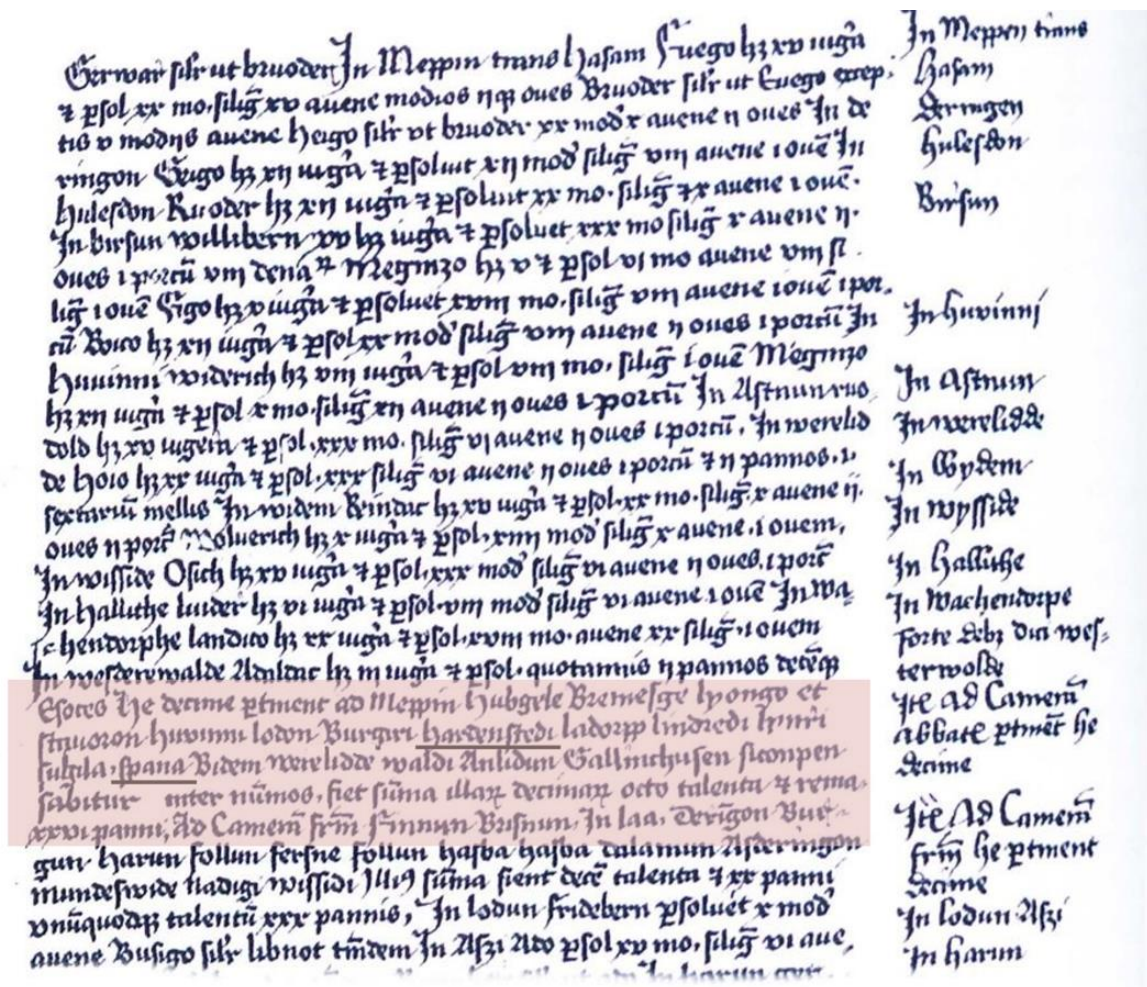 Gerwar silr ut bruoder In Meppin trans hasam Suego hz xv iuga
⁊ psol xx mo. silig xv auene modios iiqz oues Bruoder silr ut Suego excep.
tis v modiis auene heigo silr vt bruoder xx mod x auene ii oues In de
ringon Geigo hz xii iuga ⁊ psoluit xii mod silig viii auene i oue In
hulesdon Ruoder hz xii iuga ⁊ psoluit xx mo. silig ⁊ x auene i oue.
In birsun willibern xv hz iuga ⁊ psoluet xxx mo silig x auene ii.
oues i porcu viii dena Meginzo hz v ⁊ psol vi mo auene viii si
lig i oue Sigo hz v iuga ⁊ psoluet xviii mo. silig viii auene i oue i por.
cu Boico hz xii iuga ⁊ psol xx mod silig viii auene ii oues i porcu In
huuinni widerich hz viii iuga ⁊ psol viii mo. silig i oue Meginzo
hz xii iuga ⁊ psol x mo. silig xii auene ii oues i porcu In Astnun ruo
dold hz xv iugera ⁊ psol. xxx mo. silig vi auene ii oues i porcu. In werelid
de hoio hz xx iuga ⁊ psol. xxx silig vi auene ii oues i porcu ⁊ ii pannos. i.
sextariu mellis In widem Reindac hz xv iuga ⁊ psol. xx mo. silig. x auene ii.
oues ii porc Wolverich hz x iuga ⁊ psol. xiiii mod silig x auene. i ouem.
In wisside Osich hz xv iuga ⁊ psol. xxx mod silig vi auene ii oues. i porc
In hallithe liuder hz vi iuga ⁊ psol. viii mod silig vi auene i oue In wa
chendorphe landico hz xx iuga ⁊ psol. xviii mo. auene xx silig. i ouem
In westerewalde Adaldac hz iii iuga ⁊ psol. quotannis ii pannos deceqz
Esoces He decime ptinent ad Meppin hubgele Bremesge lyongo et
stauoron huuinni lodon Burgiri hardenstedi ladorpp lindredi hinri
sulgila. spana Bidem werelidde waldi Anlidun Gallinchusen si conpen
sabitur inter numos. fiet suma illaꝝ decimaꝝ octo talenta ⁊ rema
xxvi panni. Ad Camera frm Sinnun Birsnun. In laa. Deringon Bue
gun harun follun fersne follun hasba hasba dalamun Asderingon
mundeswide hadigi wissidi Illi9 suma fient dece talenta ⁊ xx panni
vnuquodqz talentu xxx pannis. In lodun fridebern psoluet x mod
auene Busigo silr libnot tmdem In Aszi Ato psol xv mo. silig vi aue.
In Meppen trans
hasam
Deringen
hulesdon
Birsun
In huvinni
In Astnun
In werelidde
In Wydem
In wysside
In hallithe
In Wachendorpe
forte debz dici wes=
terwolde
Ite Ad Camera
abbate ptinet he
decime
Ite Ad Camera
frm he ptinent
decime
In lodun Aszi
In harun